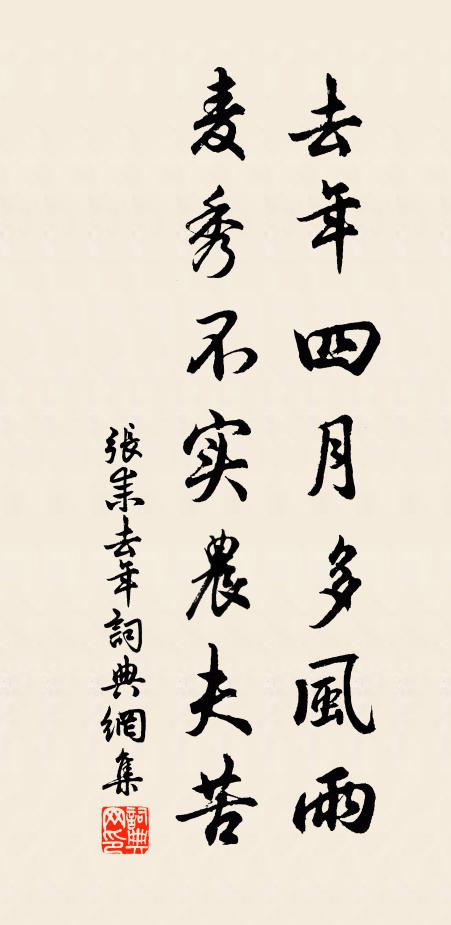 去年四月多風雨
麦秀不实農夫苦
張耒去年詞典網集
詞典网印